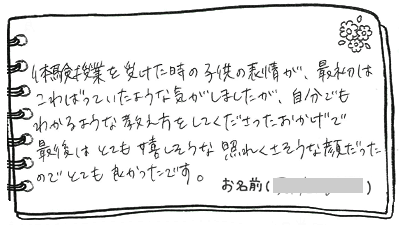 体験授業を受けた時の子供の表情が、最初は
こわばっていたような気がしましたが、自分でも
わかるような教え方をしてくださったおかげで
最後はとても嬉しそうな照れくさそうな顔だった
のでとても良かったです。
お名前( )